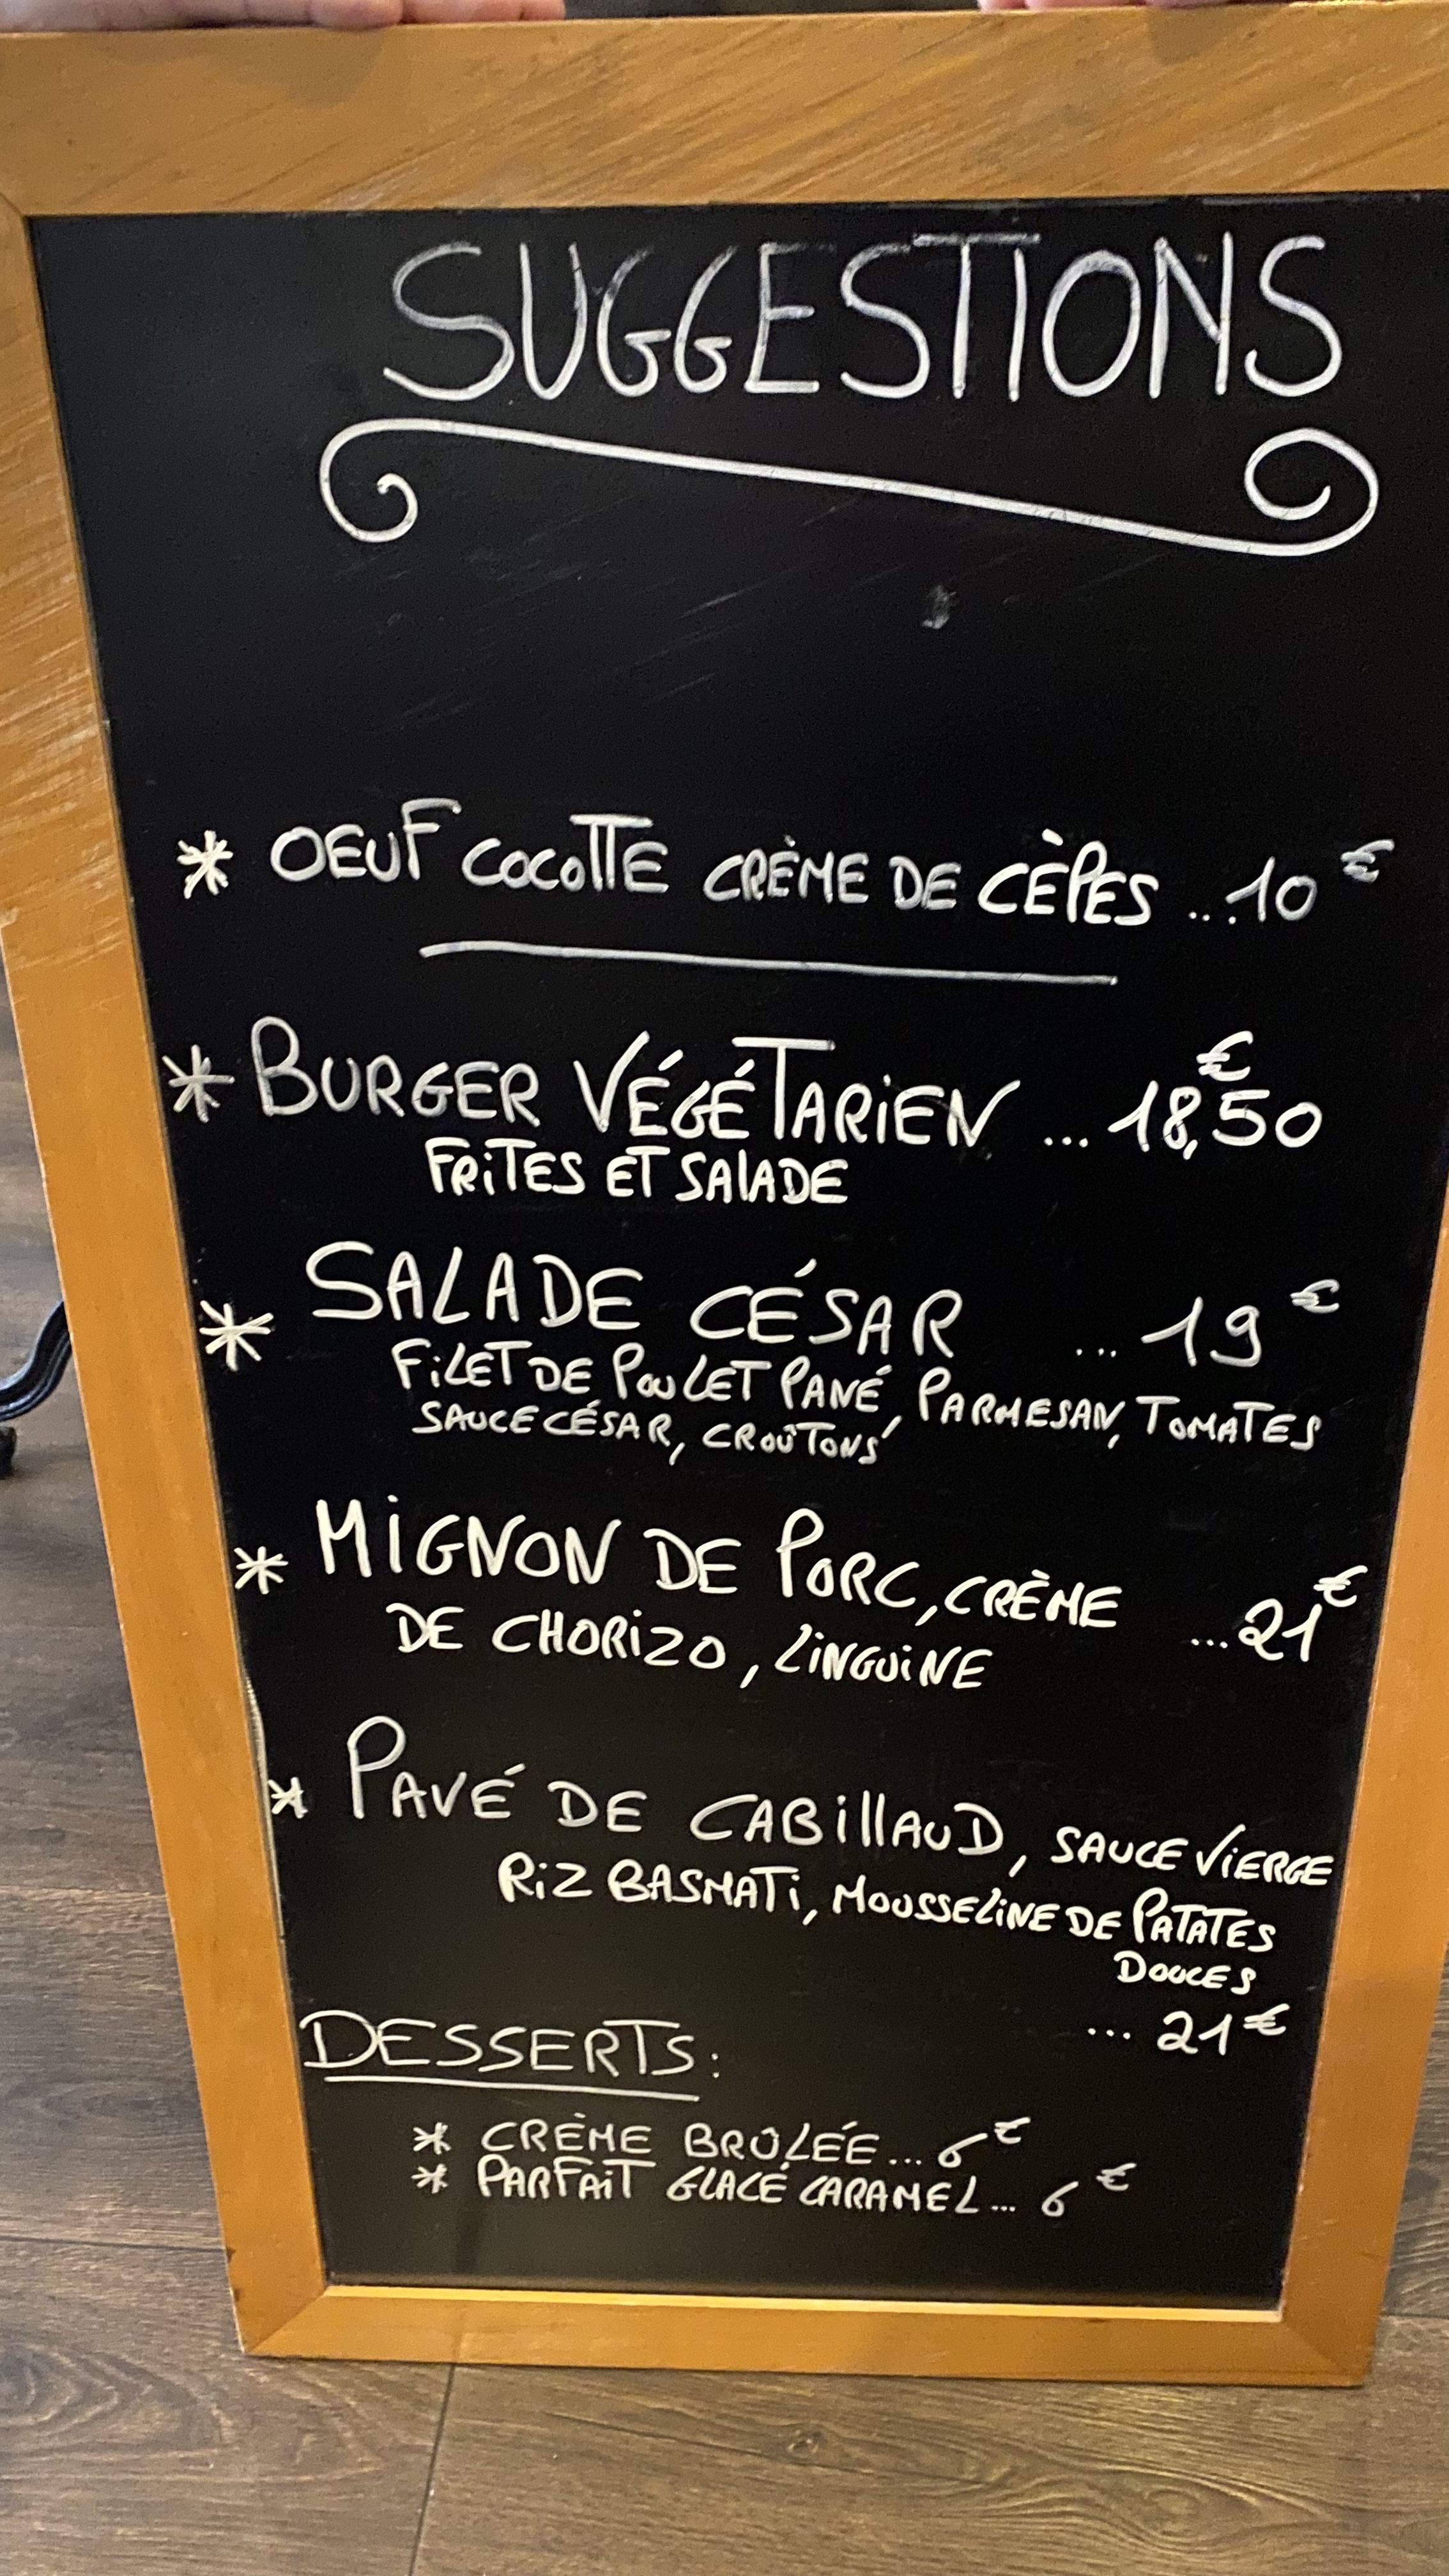 SUGGESTIONS
* OEUF COCOTTE CRÈME DE CÈPES ... 10 €
* BURGER VÉGÉTARIEN ... 18,€50
FRITES ET SALADE
* SALADE CÉSAR ... 19 €
FILET DE POULET PANÉ, PARMESAN, TOMATES
SAUCE CÉSAR, CROÛTONS
* MIGNON DE PORC, CRÈME ... 21 €
DE CHORIZO, LINGUINE
* PAVÉ DE CABILLAUD, SAUCE VIERGE
RIZ BASMATI, MOUSSELINE DE PATATES
DOUCES
... 21 €
DESSERTS:
* CRÈME BRÛLÉE ... 6 €
* PARFAIT GLACÉ CARAMEL ... 6 €